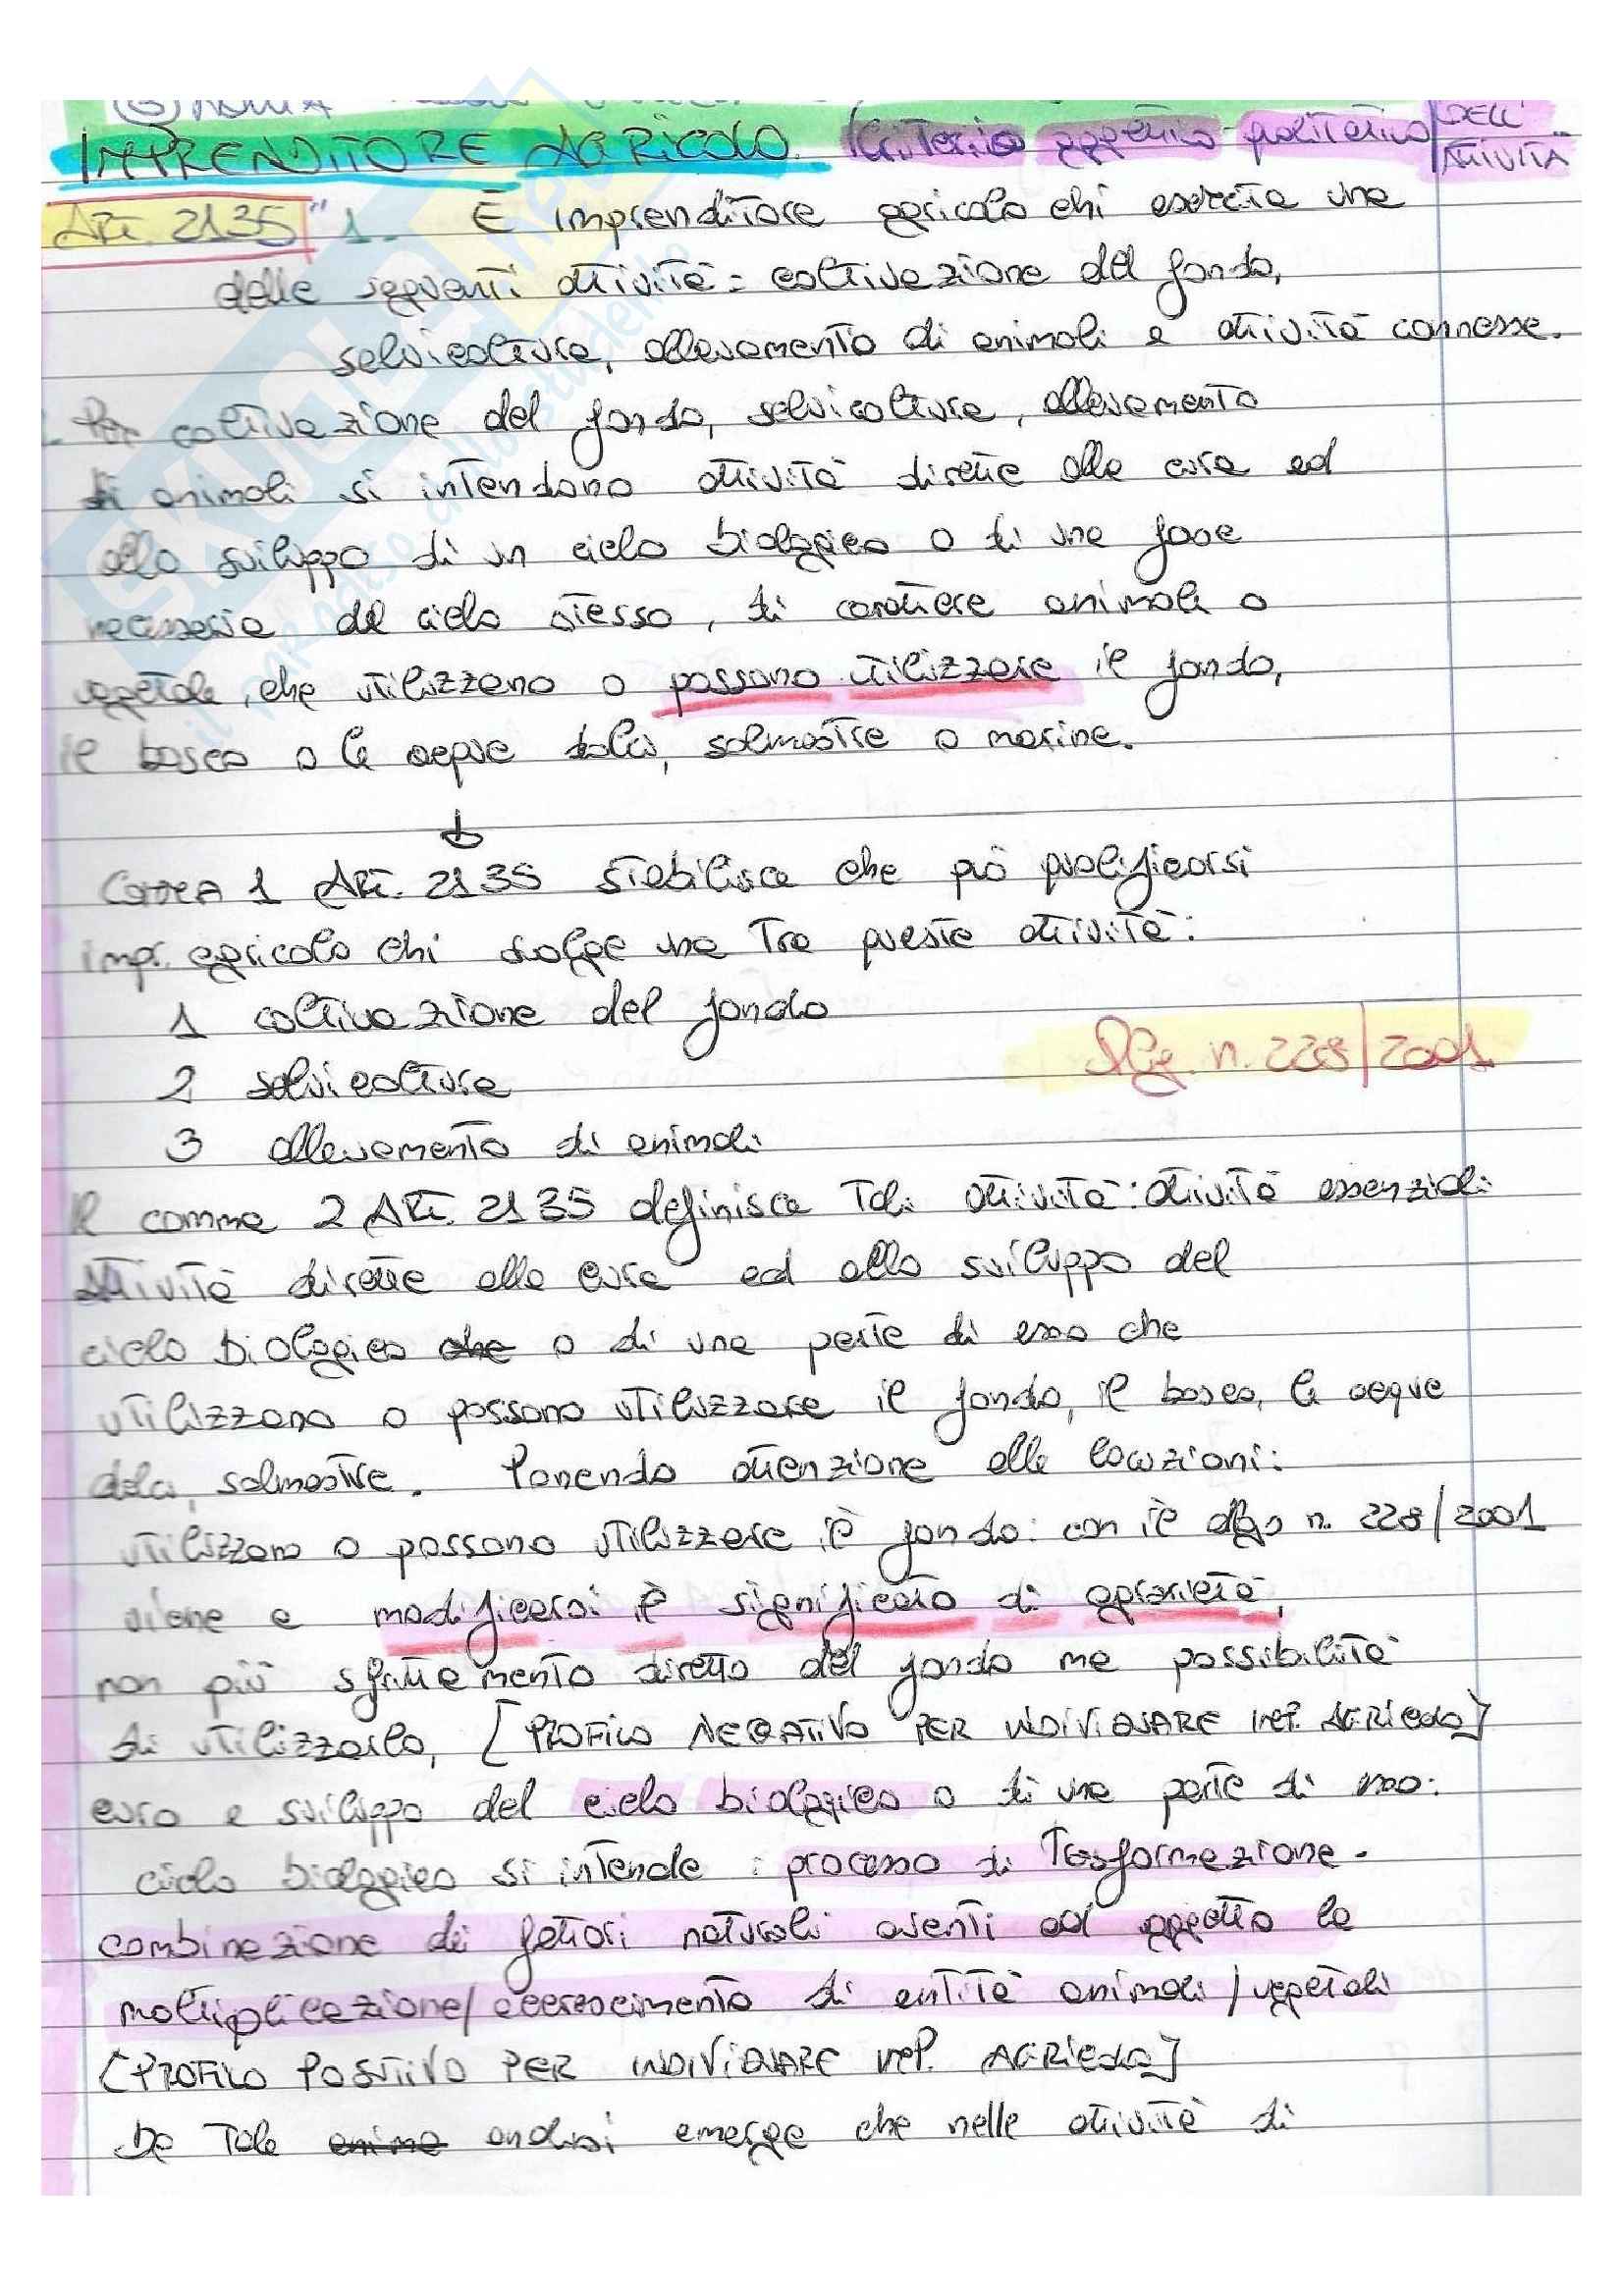 IMPRENDITORE AGRICOLO. (Criterio oggettivo-qualitativo DELL'ATTIVITÀ
ART. 2135 "1. È imprenditore agricolo chi esercita una
delle seguenti attività: coltivazione del fondo,
selvicoltura, allevamento di animali e attività connesse.
Per coltivazione del fondo, selvicoltura, allevamento
di animali si intendono attività dirette alla cura ed
allo sviluppo di un ciclo biologico o di una fase
necessaria del ciclo stesso, di carattere animale o
vegetale, che utilizzano o possono utilizzare il fondo,
il bosco o le acque dolci, salmastre o marine.
Comma 1 ART. 2135 stabilisce che può qualificarsi
impr. agricolo chi svolge una tra queste attività:
1 coltivazione del fondo
Dlg. n. 228/2001
2 selvicoltura
3 allevamento di animali
Il comma 2 ART. 2135 definisce tali attività: attività essenziali
attività dirette alla cura ed allo sviluppo del
ciclo biologico che o di una parte di esso che
utilizzano o possono utilizzare il fondo, il bosco, le acque
dolci, salmastre. Ponendo attenzione alle locuzioni:
utilizzano o possono utilizzare il fondo: con il dlgs n. 228/2001
viene a modificarsi il significato di agrarietà,
non più sfruttamento diretto del fondo ma possibilità
di utilizzarlo, [PROFILO NEGATIVO PER INDIVIDUARE IMP. AGRICOLO]
cura e sviluppo del ciclo biologico o di una parte di esso:
ciclo biologico si intende: processo di trasformazione-
combinazione di fattori naturali aventi ad oggetto la
moltiplicazione/accrescimento di entità animali/vegetali
[PROFILO POSITIVO PER INDIVIDUARE IMP. AGRICOLO]
Da tale analisi emerge che nelle attività di